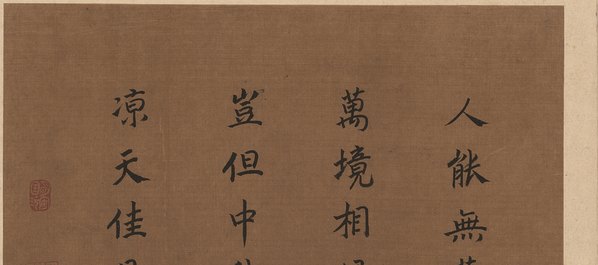 人能無
萬境相
豈但中
凉天佳